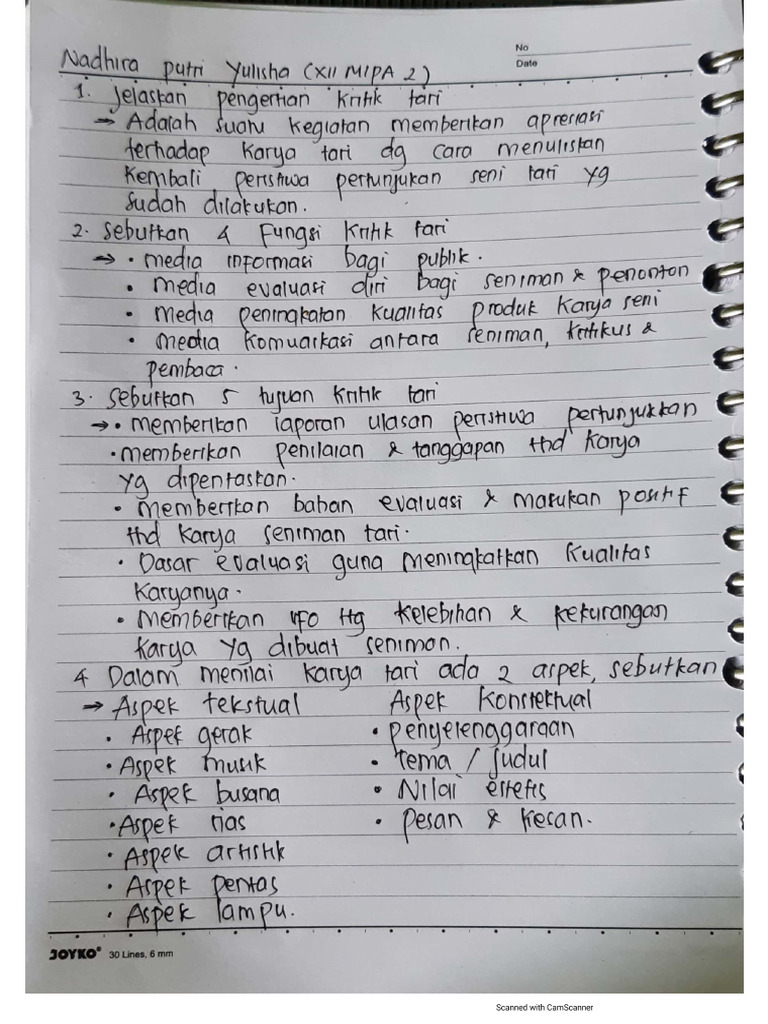 No
Date
Nadhira putri Yulisha (XII MIPA 2)
1. Jelaskan pengertian kritik tari
→ Adalah suatu kegiatan memberikan apresiasi
terhadap karya tari dg cara menuliskan
kembali peristiwa pertunjukan seni tari yg
sudah dilakukan.
2. Sebutkan 4 fungsi kritik tari
→ • media informasi bagi publik.
• media evaluasi diri bagi seniman & penonton
• media peningkatan kualitas produk karya seni
• media komuaikasi antara seniman, kritikus &
pembaca.
3. Sebutkan 5 tujuan kritik tari
→ • memberikan laporan ulasan peristiwa pertunjukkan
• memberikan penilaian & tanggapan thd karya
yg dipentaskan.
• Memberikan bahan evaluasi & masukan positif
thd karya seniman tari.
• Dasar evaluasi guna meningkatkan kualitas
karyanya.
• Memberikan ifo ttg kelebihan & kekurangan
karya yg dibuat seniman.
4 Dalam menilai karya tari ada 2 aspek, sebutkan
→ Aspek tekstual Aspek Konstektual
• Aspek gerak • penyelenggaraan
• Aspek musik • tema / judul
• Aspek busana • Nilai estetis
• Aspek rias • pesan & kesan.
• Aspek artistik
• Aspek pentas
• Aspek lampu.
JOYKO® 30 Lines, 6 mm
Scanned with CamScanner